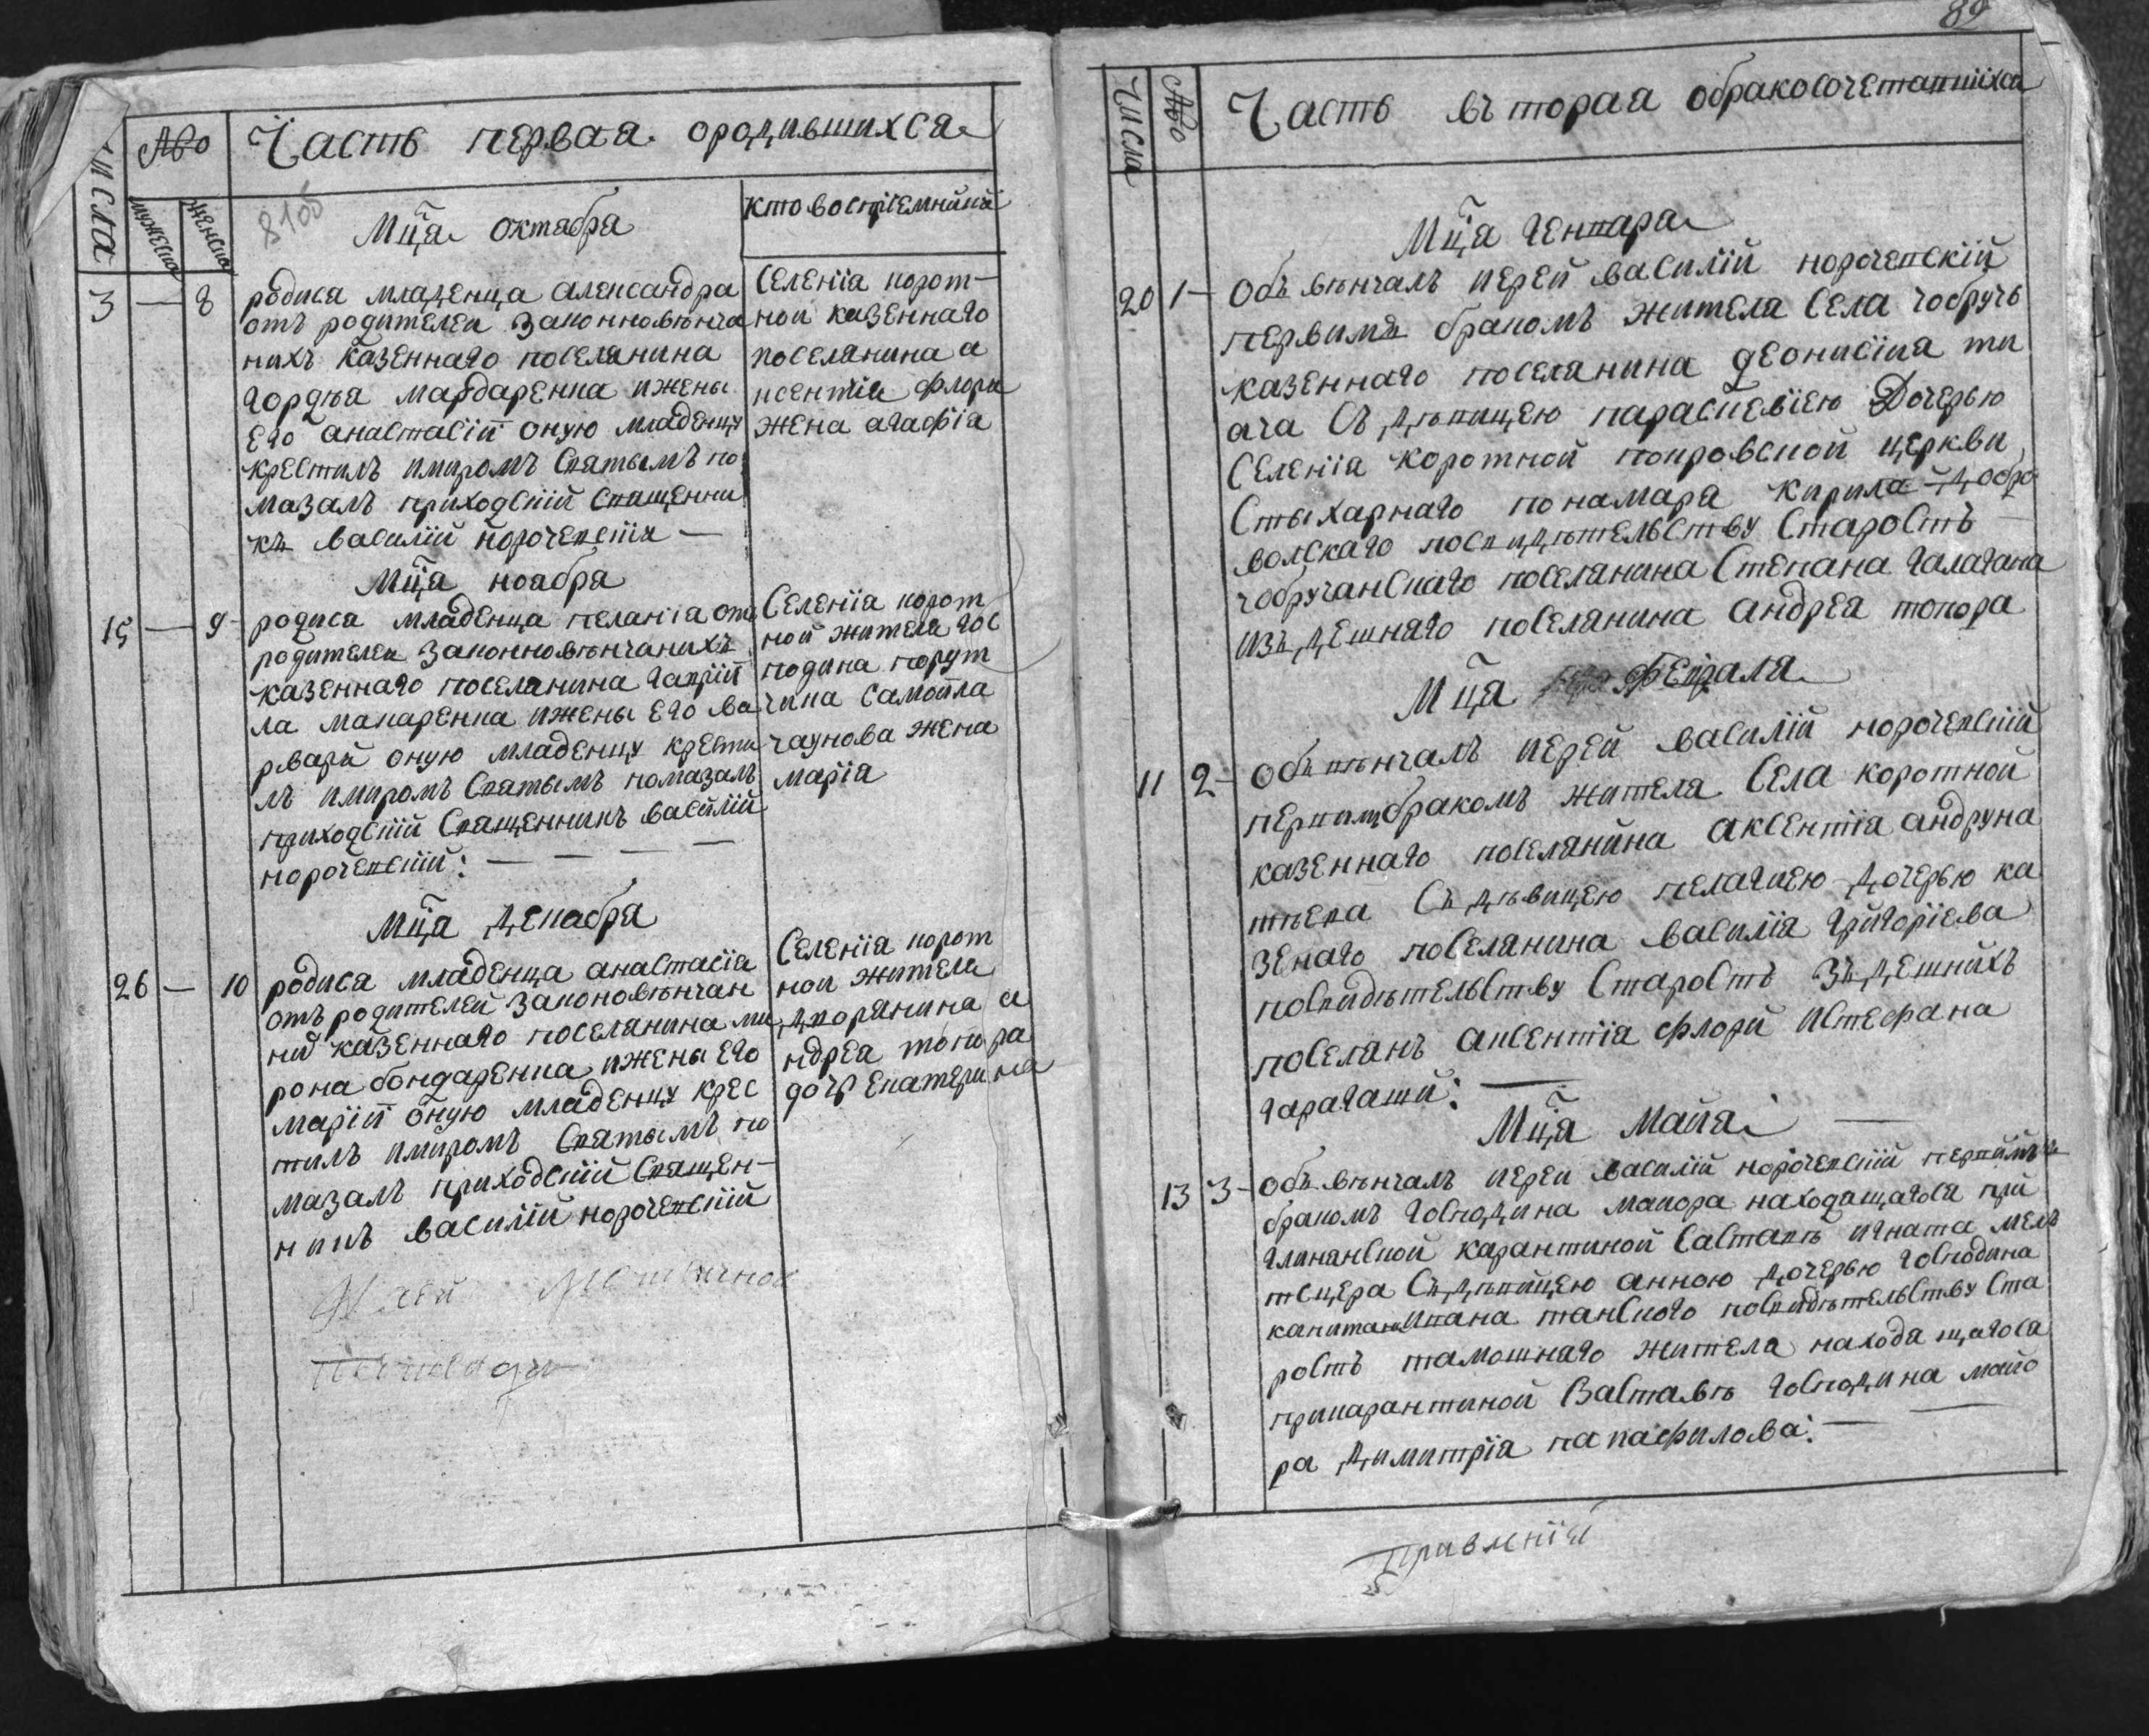 Числа
Мужеска
Женска
Часть первая ородившихся
8105
Мц̃а октабра
кто воспрїемнйкй
3 — 8
родиса младенца александра
отъ родителеи законновѣнча
нихъ казеннаго поселянина
гордѣа мардаренка ижены
его анастасїй оную младенцу
крестилъ имиромъ Святымъ по
мазалъ приходскїй Священни
къ василїй корочевскїи —
Селенїа корот-
нои казеннаго
поселянина а
ксентїи флори
жена агафїа
Мц̃а ноабра
15 — 9
родиса младенца пеланїа отъ
родителеи законновѣнчанихъ
казеннаго поселанина гаврїй
ла макаренка ижены его ва
рвари оную младенцу крести
лъ имиромъ Святымъ помазалъ
приходскїй Священникъ василїй
корочевскїй: — — — —
Селенїа корот
ной жителя гос
подина порут
чика самойла
чаунова жена
марїа
Мц̃а декабра
26 — 10
родиса младенца анастасїа
отъ родителей законовѣнчан
ни казеннаго поселянина ми
рона бондаренка ижены его
марїй оную младенцу крес
тилъ имиромъ Святымъ по
мазалъ приходскїй Священ-
никъ василїй корочевскїй
Селенїа корот
нои жители
дворянина а
ндреа топора
дочь екатерина
89
Числа
Часть въторая обракосочетавшихся
Мц̃а генвара
20 1 —
Объвѣнчалъ иерей василїй корочевскїй
первимъ бракомъ жителя Села чобручь
казеннаго поселянина деонисїиа ти
ача Съ дѣвицею параскевїею Дочерью
Селенїа коротной покровской церкви
Стыхарнаго понамаря кирила добро
волскаго посвидѣтельству Старостъ —
чобручанскаго поселянина Степана галагана
изъдешнаго поселянина андреа топора
Мц̃а февраля
11 2 —
Объвѣнчалъ иерей василїй корочевскїй
первимъ бракомъ жителя Села коротной
казеннаго поселянина аксентїа андруна
тѣева Съ дѣвицею пелагиею дочерью ка
зенаго поселянина василїа григорїева
посвидѣтельству Старостъ зъдешнихъ
поселянъ аксентїа флорй истефана
гарагаши: —
Мц̃а Маиа: —
13 3 —
Объвѣнчалъ иереи василїй корочевскїй первимъ
бракомъ господина маиора находящагося при
глинянской карантиной Саставѣ игната мель
тсцера Съ дѣвицею анною дочерью господина
капитана ивана танского посвидѣтельству Ста
ростъ тамошнаго жителя находящагося
прикарантиной Заставѣ господина маио
ра димитрїа папафилова: — —
Правленїй